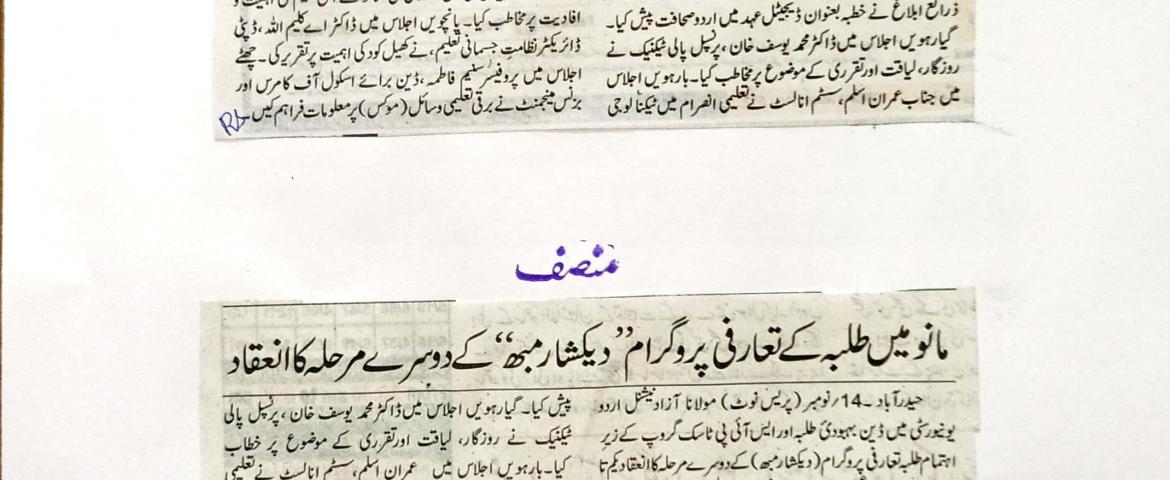 ذرائع ابلاغ نے خطبہ بعنوان ڈیجیٹل عہد میں اردو صحافت پیش کیا۔
گیارہویں اجلاس میں ڈاکٹر محمد یوسف خان، پرنسپل پالی ٹیکنیک نے
روزگار، لیاقت اور تقرری کے موضوع پر مخاطب کیا۔ بارہویں اجلاس
میں جناب عمران اسلم، سسٹم انالسٹ نے تعلیمی انصرام میں ٹیکنالوجی
افادیت پر مخاطب کیا۔ پانچویں اجلاس میں ڈاکٹر اے کلیم اللہ، ڈپٹی
ڈائریکٹر نظامت جسمانی تعلیم، نے کھیل کود کی اہمیت پر تقریر کی۔ چھٹے
اجلاس میں پروفیسر سنیم فاطمہ، ڈین برائے اسکول آف کامرس اور
بزنس مینجمنٹ نے برقی تعلیمی وسائل (موکس) پر معلومات فراہم کیں۔
منصف
مانو میں طلبہ کے تعارفی پروگرام ”دیکشارمبھ“ کے دوسرے مرحلہ کا انعقاد
حیدرآباد۔ 14/نومبر (پریس نوٹ) مولانا آزاد نیشنل اردو
یونیورسٹی میں ڈین بہبودیٔ طلبہ اور ایس آئی پی ٹاسک گروپ کے زیر
اہتمام طلبہ تعارفی پروگرام (دیکشارمبھ) کے دوسرے مرحلہ کا انعقاد یکم تا
پیش کیا۔ گیارہویں اجلاس میں ڈاکٹر محمد یوسف خان، پرنسپل پالی
ٹیکنیک نے روزگار، لیاقت اور تقرری کے موضوع پر خطاب
کیا۔ بارہویں اجلاس میں عمران اسلم، سسٹم انالسٹ نے تعلیمی